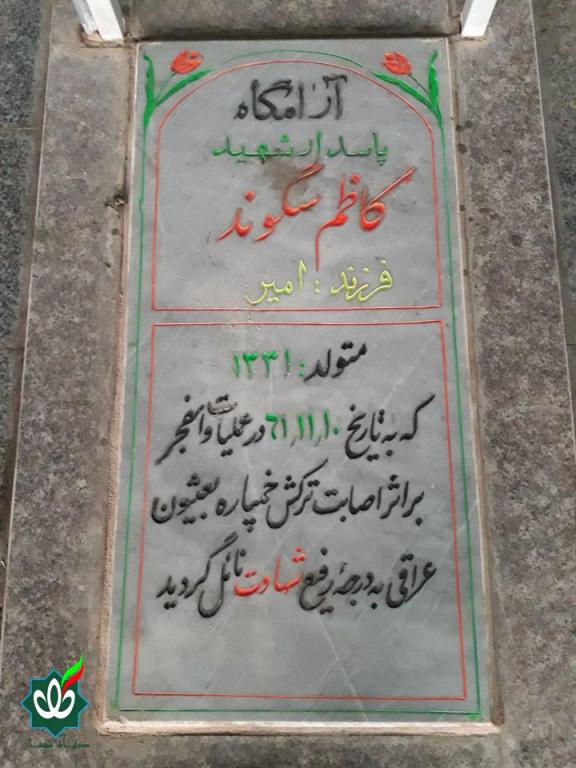 آرامگاه
پاسدار شهید
کاظم سگوند
فرزند : امیر
متولد : ۱۳۳۱
که به تاریخ ۶۱٫۱۱٫۱۰ در عملیات والفجر
براثر اصابت ترکش خمپاره بعثیون
عراقی به درجهٔ رفیع شهادت نائل گردید